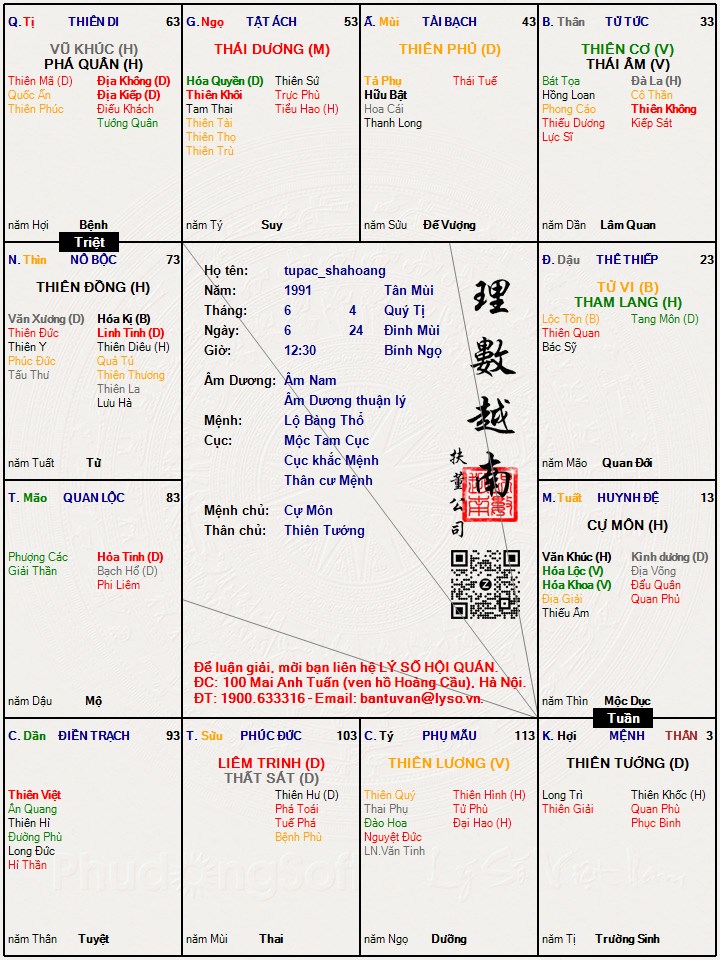 Q. Tị THIÊN DI 63
VŨ KHÚC (H)
PHÁ QUÂN (H)
Thiên Mã (D) Địa Không (D)
Quốc Ấn Địa Kiếp (D)
Thiên Phúc Điếu Khách
Tướng Quân
năm Hợi Bệnh
G. Ngọ TẬT ÁCH 53
THÁI DƯƠNG (M)
Hóa Quyền (D) Thiên Sứ
Thiên Khôi Trực Phù
Tam Thai Tiểu Hao (H)
Thiên Tài
Thiên Thọ
Thiên Trù
năm Tý Suy
Ấ. Mùi TÀI BẠCH 43
THIÊN PHỦ (D)
Tả Phụ Thái Tuế
Hữu Bật
Hoa Cái
Thanh Long
năm Sửu Đế Vượng
B. Thân TỬ TỨC 33
THIÊN CƠ (V)
THÁI ÂM (V)
Bát Tọa Đà La (H)
Hồng Loan Cô Thần
Phong Cáo Thiên Không
Thiếu Dương Kiếp Sát
Lực Sĩ
năm Dần Lâm Quan
Triệt
N. Thìn NÔ BỘC 73
THIÊN ĐỒNG (H)
Văn Xương (D) Hóa Kị (B)
Thiên Đức Linh Tinh (D)
Thiên Y Thiên Diêu (H)
Phúc Đức Quả Tú
Tấu Thư Thiên Thương
Thiên La
Lưu Hà
năm Tuất Tử
Họ tên: tupac_shahoang
Năm: 1991 Tân Mùi
Tháng: 6 4 Quý Tị
Ngày: 6 24 Đinh Mùi
Giờ: 12:30 Bính Ngọ
Âm Dương: Âm Nam
Âm Dương thuận lý
Mệnh: Lộ Bàng Thổ
Cục: Mộc Tam Cục
Cục khắc Mệnh
Thân cư Mệnh
Mệnh chủ: Cự Môn
Thân chủ: Thiên Tướng
理數越南
扶董公司
Z
Để luận giải, mời bạn liên hệ LÝ SỐ HỘI QUÁN.
ĐC: 100 Mai Anh Tuấn (ven hồ Hoàng Cầu), Hà Nội.
ĐT: 1900.633316 - Email: bantuvan@lyso.vn.
Đ. Dậu THÊ THIẾP 23
TỬ VI (B)
THAM LANG (H)
Lộc Tồn (B) Tang Môn (D)
Thiên Quan
Bác Sỹ
năm Mão Quan Đới
T. Mão QUAN LỘC 83
Phượng Các Hỏa Tinh (D)
Giải Thần Bạch Hổ (D)
Phi Liêm
năm Dậu Mộ
M. Tuất HUYNH ĐỆ 13
CỰ MÔN (H)
Văn Khúc (H) Kình dương (D)
Hóa Lộc (V) Địa Võng
Hóa Khoa (V) Đẩu Quân
Địa Giải Quan Phủ
Thiếu Âm
năm Thìn Mộc Dục
Tuần
C. Dần ĐIỀN TRẠCH 93
Thiên Việt
Ân Quang
Thiên Hỉ
Đường Phù
Long Đức
Hỉ Thần
năm Thân Tuyệt
T. Sửu PHÚC ĐỨC 103
LIÊM TRINH (D)
THẤT SÁT (D)
Thiên Hư (D)
Phá Toái
Tuế Phá
Bệnh Phù
năm Mùi Thai
C. Tý PHỤ MẪU 113
THIÊN LƯƠNG (V)
Thiên Quý Thiên Hình (H)
Thai Phụ Tử Phù
Đào Hoa Đại Hao (H)
Nguyệt Đức
LN.Văn Tinh
năm Ngọ Dưỡng
K. Hợi MỆNH THÂN 3
THIÊN TƯỚNG (D)
Long Trì Thiên Khốc (H)
Thiên Giải Quan Phù
Phục Binh
năm Tị Trường Sinh